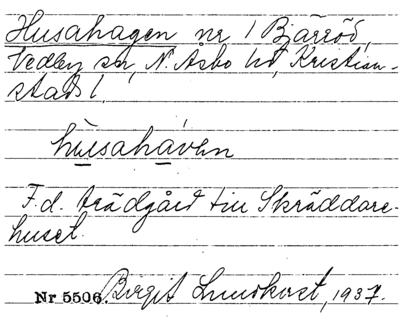 Husahagen nr 1 Bjärröd,
Vedby sn, N. Åsbo hd, Kristian-
stads l.
husahaven
F.d. trädgård till Skräddare-
huset.
Nr 5506. Birgit Lundkvist, 1937.